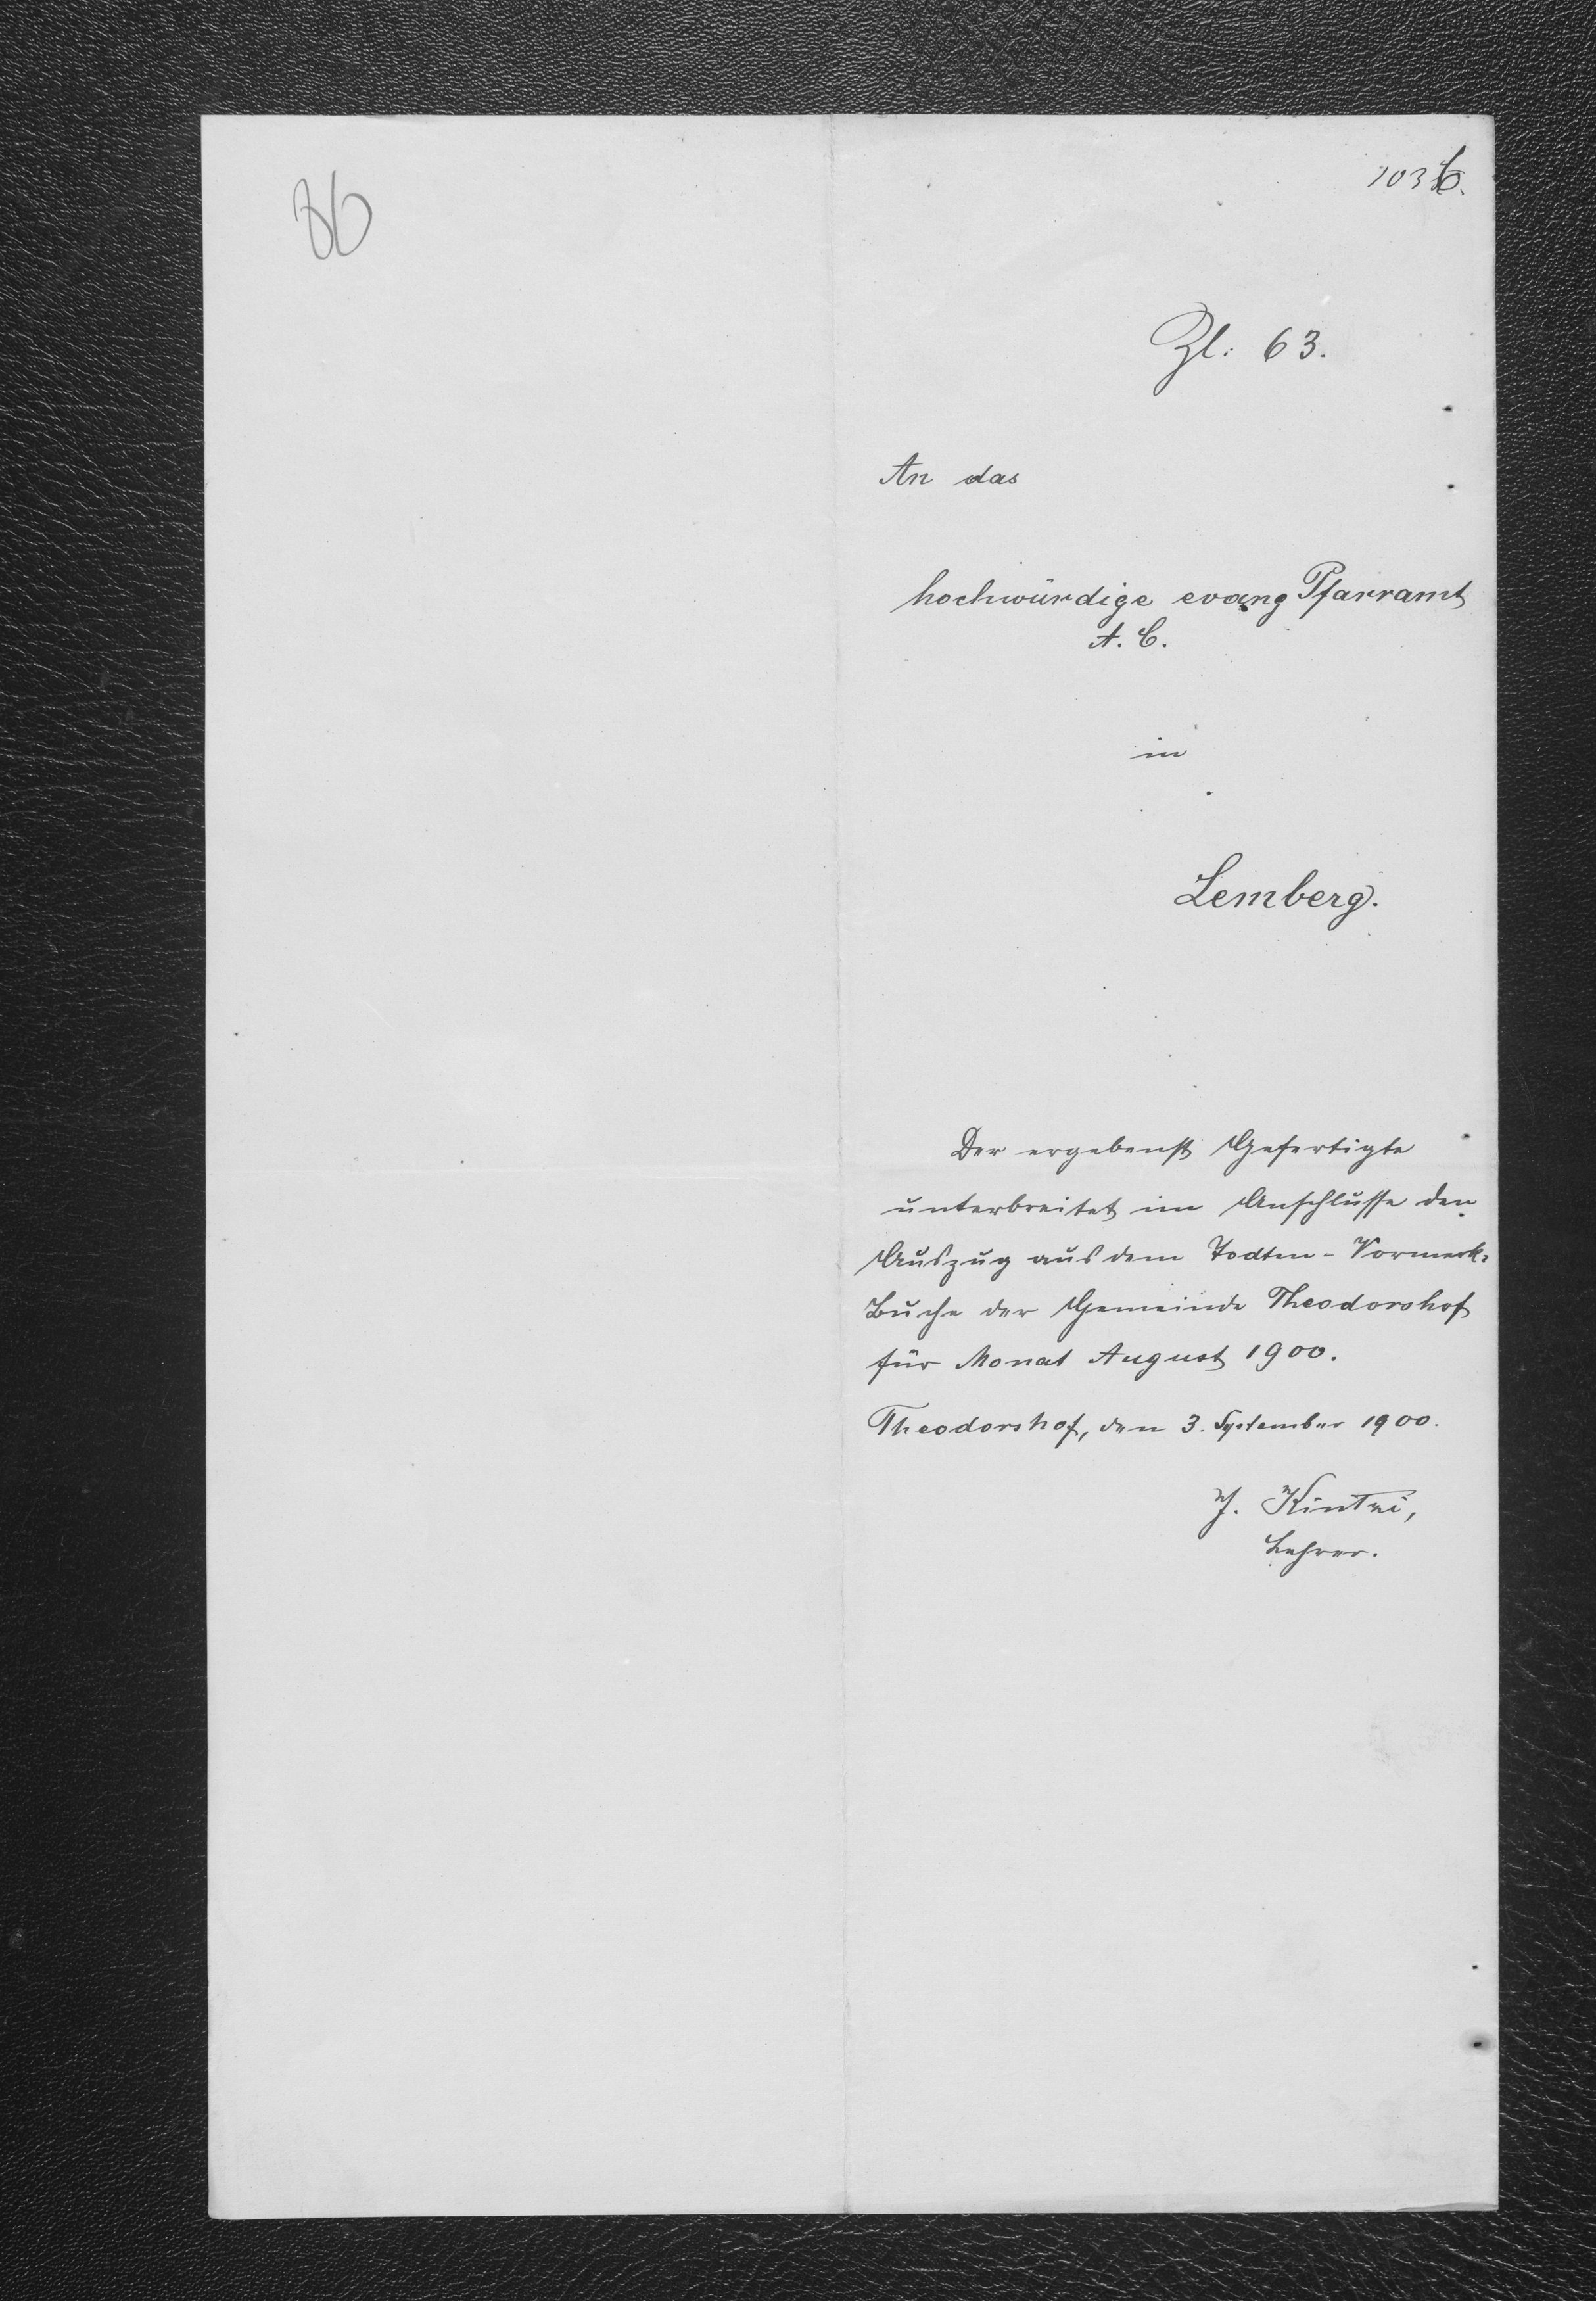 86
1036.
Zl: 63.
An das
hochwürdige evang Pfarramt
A. C.
in
Lemberg.
Der ergebenst Gefertigte
unterbreitet im Anschlusse den
Auszug aus dem Todten-Vormerk-
Buche der Gemeinde Theodorshof
für Monat August 1900.
Theodorshof, den 3. September 1900.
J. Kintzi,
Lehrer.